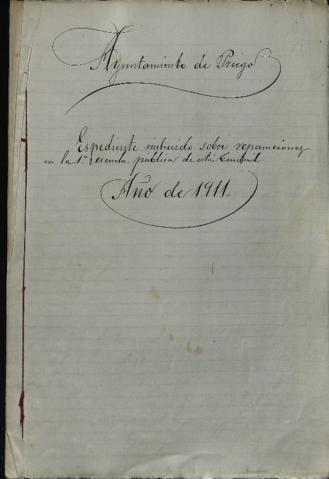 Ayuntamiento de Priego
Espediente instruido sobre reparaciones
en la 1ª escuela publica de esta Ciudad
Año de 1911.